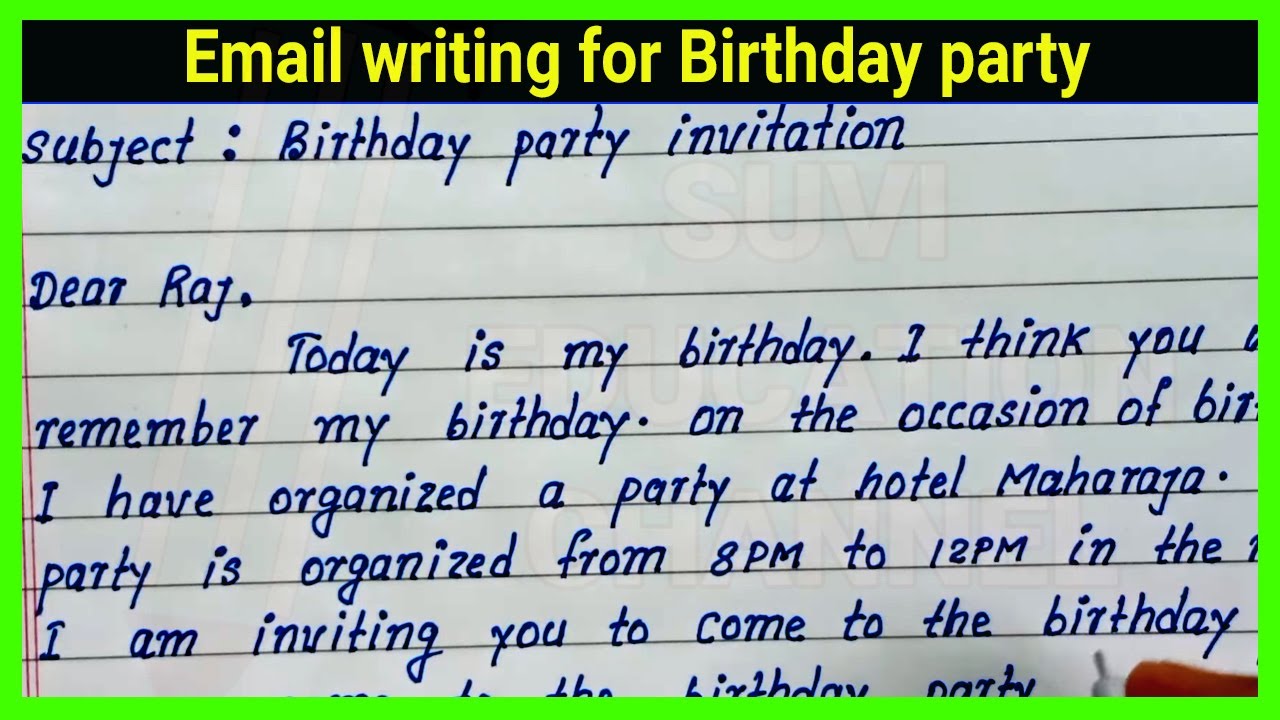 Email writing for Birthday party
Subject : Birthday party invitation
SUVI
Dear Raj.
EDUCATION
Today is my birthday. I think you
remember my birthday. on the occasion of
I have organized a party at hotel Maharaja.
CHANNEL
party is organized from 8PM to 12PM in the
I am inviting you to come to the birthday
to the birthday party